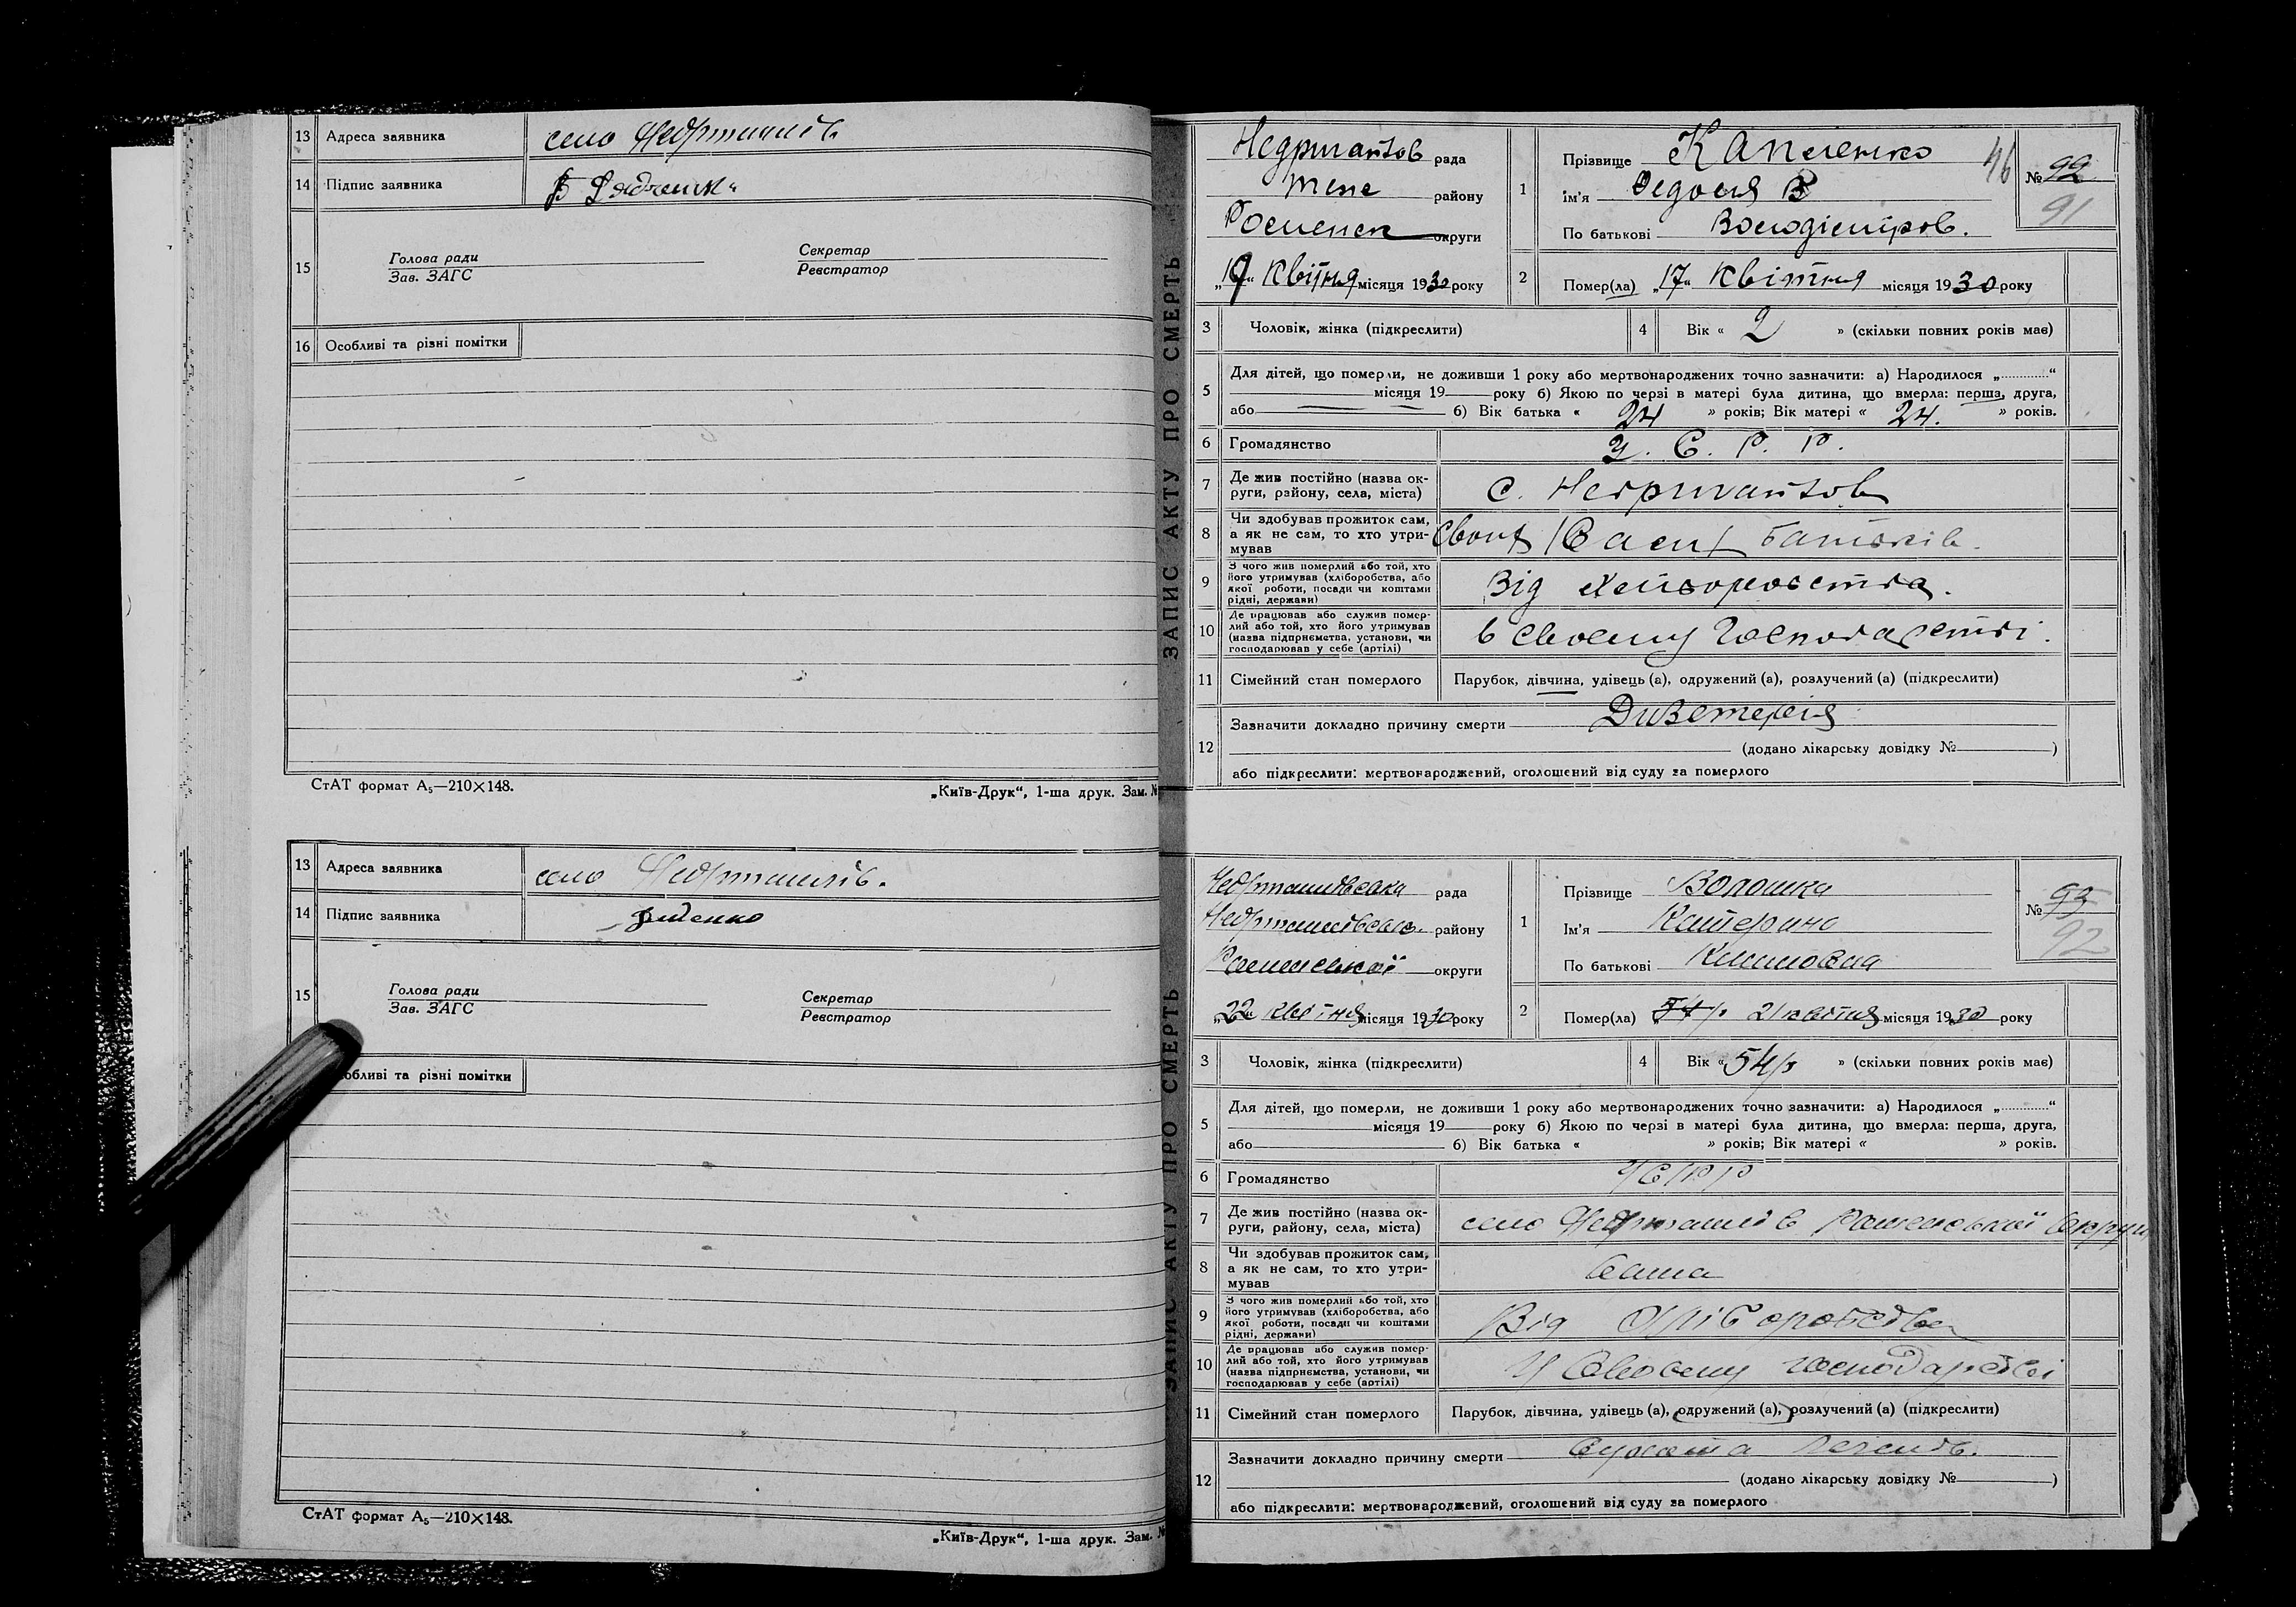 13 Адреса заявника село Недригайлів
14 Підпис заявника Б
15 Голова ради
Зав. ЗАГС
Секретар
Реєстратор
16 Особливі та різні помітки
СтАТ формат А₅—210×148.
„Київ-Друк“, 1-ша друк. Зам. №
13 Адреса заявника село Недригайлів.
14 Підпис заявника
15 Голова ради
Зав. ЗАГС
Секретар
Реєстратор
обливі та різні помітки
СтАТ формат А₅—210×148.
„Київ-Друк“, 1-ша друк. Зам. №
ЗАПИС АКТУ ПРО СМЕРТЬ
рада
району
округи
„19“ Квітня місяця 1930 року
1 Прізвище Капленко
Ім'я Федосія В
По батькові Володіміров.
46
№ 92
91
2 Помер(ла) „17“ Квітня місяця 1930 року
3 Чоловік, жінка (підкреслити)
4 Вік « 2 » (скільки повних років має)
5 Для дітей, що померли, не доживши 1 року або мертвонароджених точно зазначити: а) Народилося „............“
місяця 19 року б) Якою по черзі в матері була дитина, що вмерла: перша, друга,
або б) Вік батька « 24 » років; Вік матері « 24. » років.
6 Громадянство У. С. Р. Р.
7 Де жив постійно (назва округи, району, села, міста) с. Недригайлов
8 Чи здобував прожиток сам, а як не сам, то хто утримував батьків.
9 З чого жив померлий або той, хто його утримував (хліборобства, або якої роботи, посади чи коштами рідні, держави) Від хліборобства.
10 Де працював або служив померлий або той, хто його утримував (назва підприємства, установи, чи господарював у себе (артілі) в своему господарстві.
11 Сімейний стан померлого Парубок, дівчина, удівець (а), одружений (а), розлучений (а) (підкреслити)
12 Зазначити докладно причину смерти Дизентерія
(додано лікарську довідку № )
або підкреслити: мертвонароджений, оголошений від суду за померлого
ЗАПИС АКТУ ПРО СМЕРТЬ
Недригайлівська рада
Недригайлівськ. району
Роменської округи
„22“ квітня місяця 1930 року
1 Прізвище Волошка
Ім'я Катерина
По батькові Климовна
№ 93
92
2 Помер(ла) 54 р 21 квітня місяця 1930 року
3 Чоловік, жінка (підкреслити)
4 Вік « 54 р » (скільки повних років має)
5 Для дітей, що померли, не доживши 1 року або мертвонароджених точно зазначити: а) Народилося „............“
місяця 19 року б) Якою по черзі в матері була дитина, що вмерла: перша, друга,
або б) Вік батька « » років; Вік матері « » років.
6 Громадянство УСРР
7 Де жив постійно (назва округи, району, села, міста) село Недригайлів Роменської округи
8 Чи здобував прожиток сам, а як не сам, то хто утримував Сама
9 З чого жив померлий або той, хто його утримував (хліборобства, або якої роботи, посади чи коштами рідні, держави) Від хліборобства
10 Де працював або служив померлий або той, хто його утримував (назва підприємства, установи, чи господарював у себе (артілі) У своему господарстві
11 Сімейний стан померлого Парубок, дівчина, удівець (а), одружений (а), розлучений (а) (підкреслити)
12 Зазначити докладно причину смерти
(додано лікарську довідку № )
або підкреслити: мертвонароджений, оголошений від суду за померлого